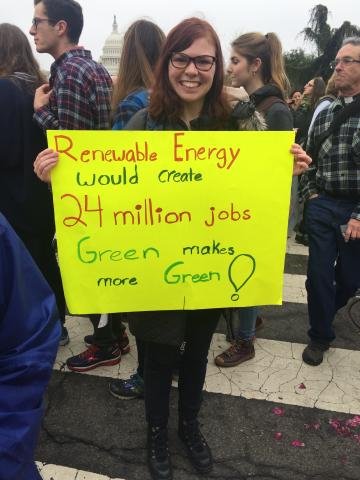 Renewable Energy
would create
24 million jobs
Green makes
more Green!